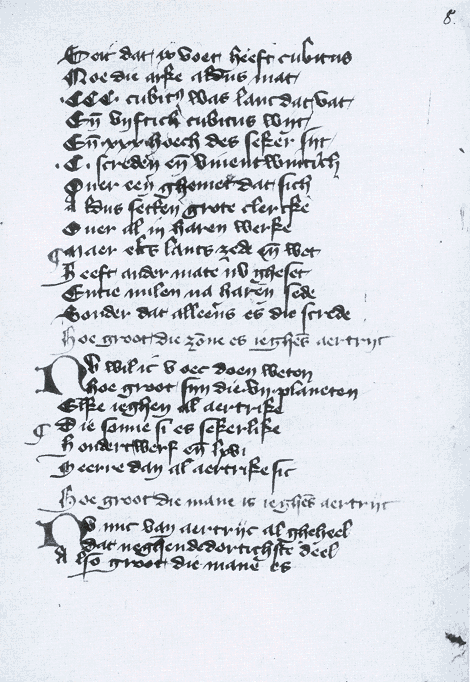 8.
Ooit dat ix voet heeft cubitus
Noe die arke aldus mat
.CCC. cubitus was lanc dat vat
Eñ vijftich cubitus wijt
Eñ xxx hoech des seker sijt
.C. screden eñ vivientwintich
Over een ghemet dat sich
Aldus setten grote clercke
Over al in haren werke
Maer elcs lants zede eñ wet
Heeft ander mate nv gheset
Entie milen na haren sede
Sonder dat alleens es die screde
Hoe groot die zōne es ieghēs aertrijc
Nv wil ic v oec doen weten
Hoe groot sijn die vij planeten
Elke ieghen al aertrike
Die sonne si es sekerlike
Hondertwerf eñ lxvi
Meerre dan al aertrike sic
Hoe groot die mane is ieghēs aertrijc
Nv mic van aertrijc al gheheel
dat neghendedortichste deel
Also groot die mane es